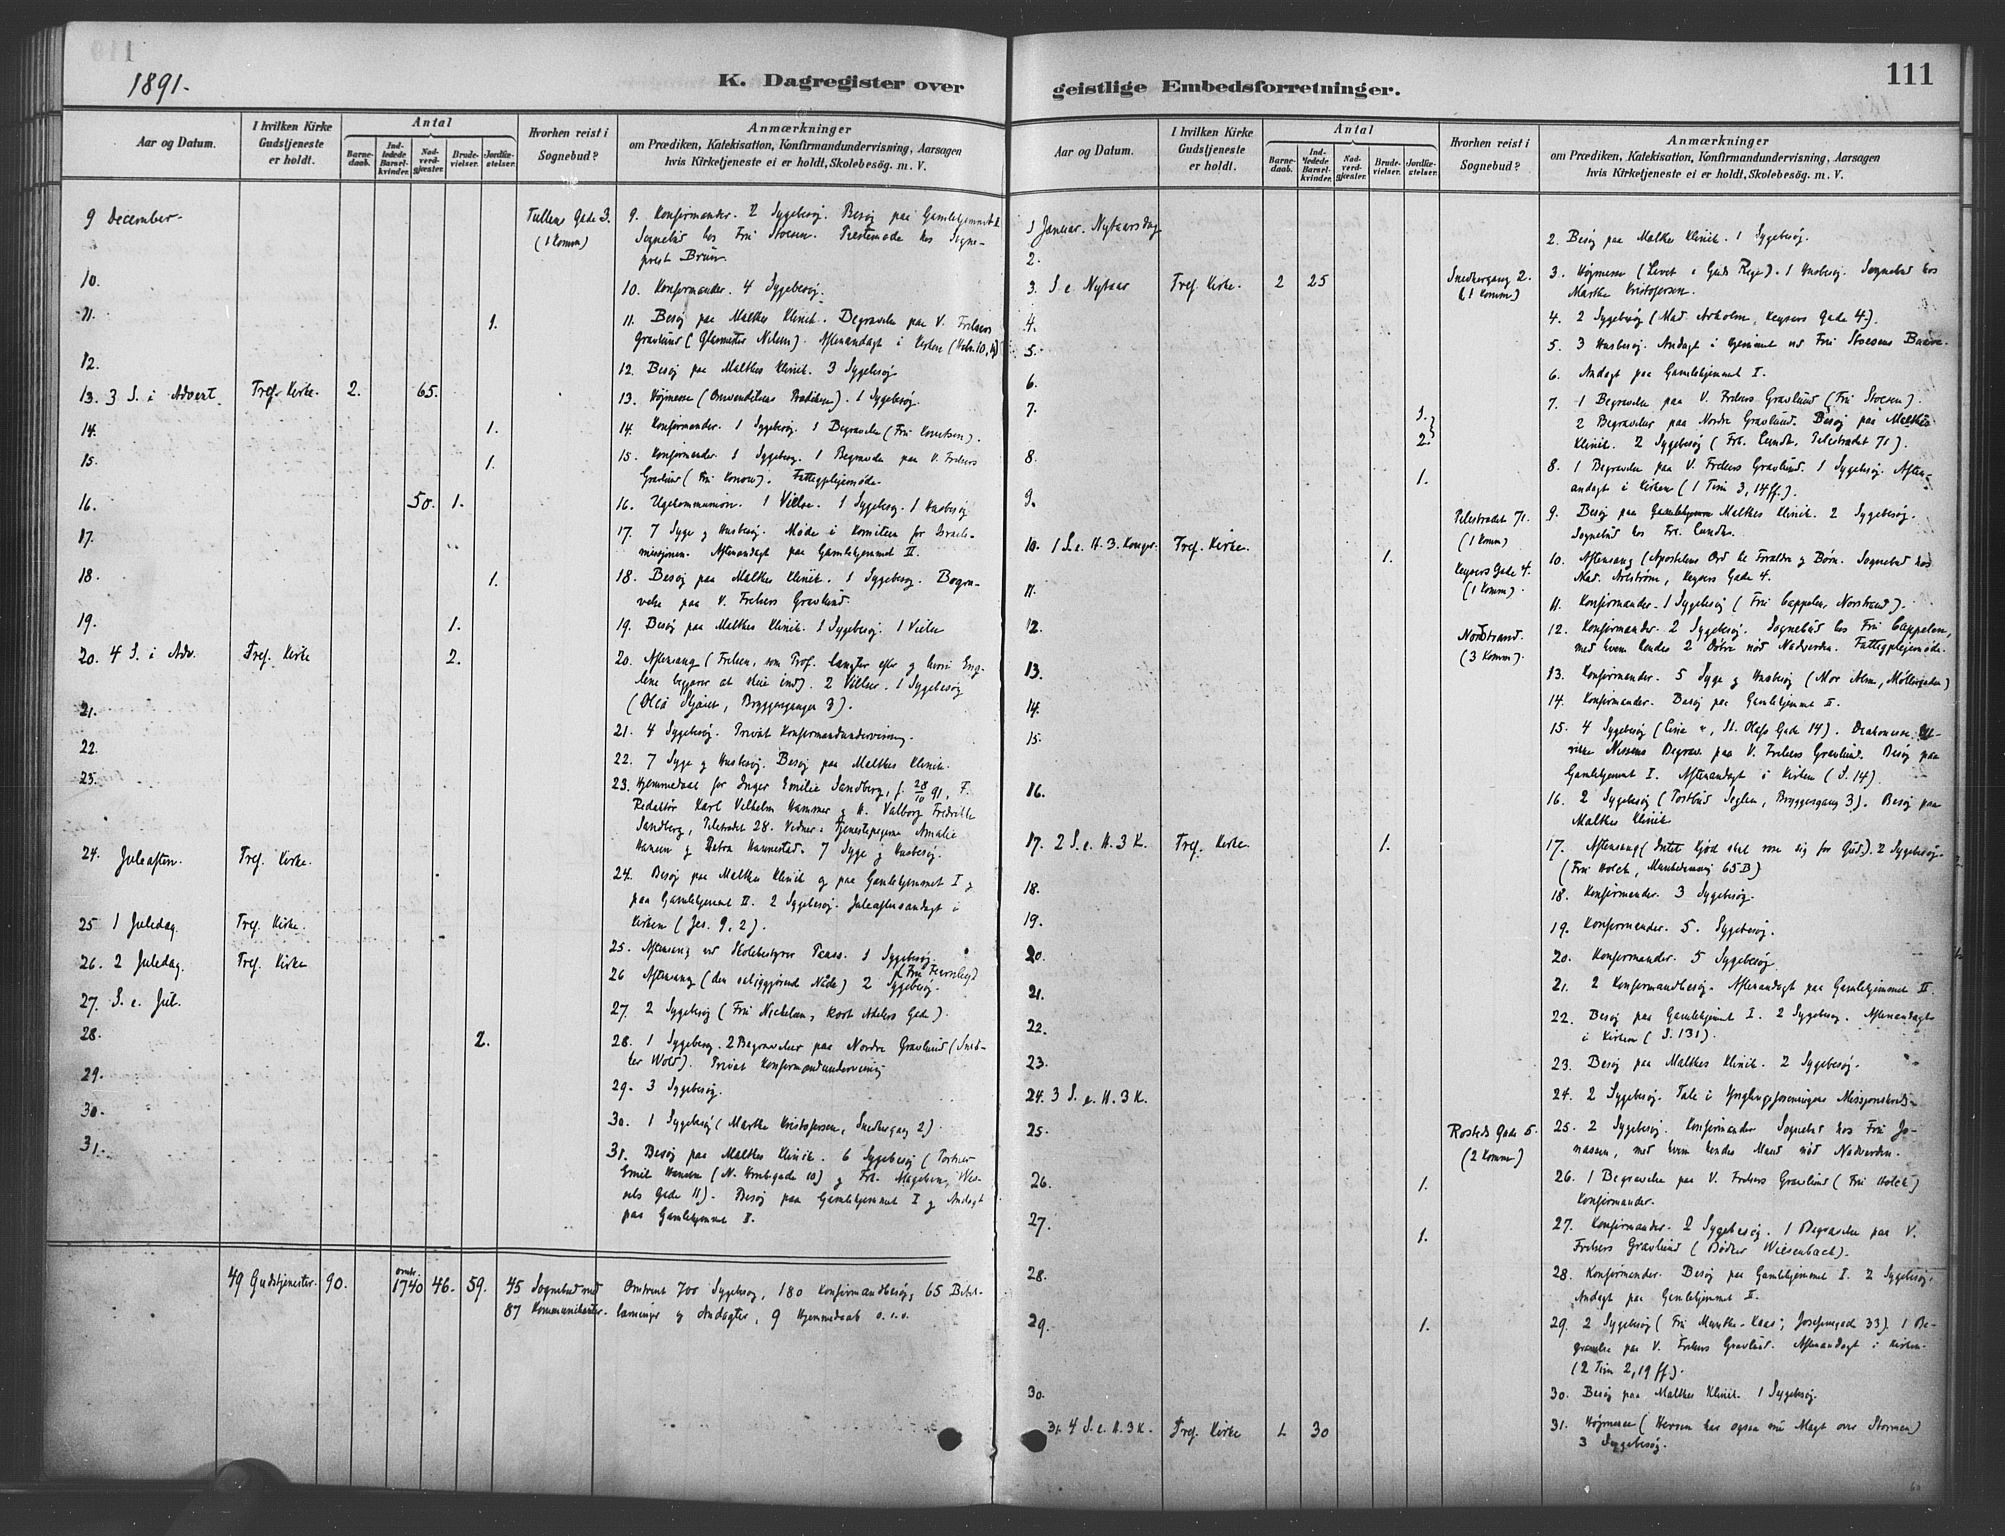 1891.
K. Dagregister over
Aar og Datum.
I hvilken Kirke Gudstjeneste er holdt.
Antal
Barne-daab.
Ind-ledede Barsel-kvinder.
Nad-verd-gjester.
Brude-vielser.
Jordfæ-stelser.
Hvorhen reist i Sognebud?
Anmærkninger
om Prædiken, Katekisation, Konfirmandundervisning, Aarsagen
hvis Kirketjeneste ei er holdt, Skolebesög. m. V.
9 December.
Tullins Gade 3.
(1 Komm)
9. Konfirmander. 2 Sygebesøg. Besøg paa Gamlehjemmet I.
Sognebud hos Fru Stoesen. Prestemøde hos Sogne-
prest Bruun.
10.
10. Konfirmander. 4 Sygebesøg.
11.
1.
11. Besøg paa Malthes Klinik. Begravelse paa V. Frelsers
Gravlund (Glasmester Nilsen). Aftenandagt i Kirken
12.
12. Besøg paa Malthes Klinik. 3 Sygebesøg
13. 3 S. i Advent
Tref. Kirke.
2.
65.
13. Højmesse (Omvendelsens Prædiken). 1 Sygebesøg.
14.
1.
14. Konfirmander. 1 Sygebesøg. 1 Begravelse
15.
1.
15. Konfirmander. 1 Sygebesøg. 1 Begravelse paa V. Frelsers
Gravlund. Fattigplejemøde.
16.
50.
1.
16. Ugekommunion. 1 Vielse. 1 Sygebesøg. 1 Husbesøg
17.
17. 7 Syge og Husbesøg. Møde i Komiteen for Israels-
missionen. Aftenandagt paa Gamlehjemmet II.
18.
1.
18. Besøg paa Malthes Klinik. 1 Sygebesøg. Begra-
velse paa V. Frelsers Gravlund.
19.
1.
19. Besøg paa Malthes Klinik. 1 Sygebesøg. 1 Vielse
20. 4 S. i Adv.
Tref. Kirke
2.
20. Aftensang (Frelsen, som Prof. langter efter og hvori Eng-
lene begjærer at skue ind). 2 Vielser. 1 Sygebesøg
(Bryggergangen 3).
21.
21. 4 Sygebesøg. Privat Konfirmandundervisning.
22.
22. 7 Syge og Husbesøg. Besøg paa Malthes Klinik.
23.
23. Hjemmedaab for Inger Emilie Sandberg, f. 28/10 91. F.
Redaktør Karl Vilhelm Hammer og H. Valborg Fredrikke
Sandberg, Pilestrædet 28. Vidner: Tjenestepigerne Amalie
Hansen og Petra Hannestad. 7 Syge og Husbesøg.
24. Juleaften.
Tref. Kirke.
24. Besøg paa Malthes Klinik og paa Gamlehjemmet I og
paa Gamlehjemmet II. 2 Sygebesøg. Juleaftensandagt i
Kirken (Jes. 9, 2).
25 1 Juledag
Tref. Kirke.
25. Aftensang ved Skolebestyrer. 1 Sygebesøg.
26. 2 Juledag.
Tref. Kirke
26 Aftensang (den saliggjørende Nåde) 2 Sygebesøg.
27. S. e. Jul.
27. 2 Sygebesøg (Fru Nickelsen, Kort Adelers Gade).
28.
2.
28. 1 Sygebesøg. 2 Begravelser paa Nordre Gravlund (
Wold). Privat Konfirmandundervisning
29.
29. 3 Sygebesøg.
30.
30. 1 Sygebesøg (Marthe Kristofersen, Snedkergang 2).
31.
31. Besøg paa Malthes Klinik. 6 Sygebesøg (Portner
Emil Hansen og Frk. Magelsen, Wes-
sels Gade 11). Besøg paa Gamlehjemmet I og Andagt
paa Gamlehjemmet II.
49 Gudstjenester.
90.
omtr.
1740
46.
59.
45 Sognebud med
87 Kommunikanter.
Omtrent 700 Sygebesøg, 180 Konfirmandbesøg, 65 Bibel-
læsninger og Andagter, 9 Hjemmedaab o.s.v.
geistlige Embedsforretninger.
111
Aar og Datum.
I hvilken Kirke Gudstjeneste er holdt.
Antal
Barne-daab.
Ind-ledede Barsel-kvinder.
Nad-verd-gjester.
Brude-vielser.
Jordfæ-stelser.
Hvorhen reist i Sognebud?
Anmærkninger
om Prædiken, Katekisation, Konfirmandundervisning, Aarsagen
hvis Kirketjeneste ei er holdt, Skolebesög. m. V.
1 Januar. Nytaarsdag
2.
2. Besøg paa Malthes Klinik. 1 Sygebesøg.
3. S. e. Nytaar
Tref. Kirke.
2
25
Snedkergang 2.
(1 Komm)
3. Højmesse (Livet i Guds Rige). 1 Husbesøg. Sognebud hos
Marthe Kristofersen.
4.
4. 2 Sygebesøg (Mad. Arholm, Keysers Gade 4.).
5.
5. 3 Husbesøg. Andagt i Hjemmet ved Fru Stoesens Baare.
6.
6. Andagt paa Gamlehjemmet I.
7.
1.
2.
7. 1 Begravelse paa V. Frelsers Gravlund (Fru Stoesen).
2 Begravelser paa Nordre Gravlund. Besøg paa Malthes
Klinik. 2 Sygebesøg (Frk. Lundh, Pilestrædet 71).
8.
1.
8. 1 Begravelse paa V. Frelsers Gravlund. 1 Sygebesøg. Aften-
andagt i Kirken (1 Tim 3, 14ff.).
9.
Pilestrædet 71.
(1 Komm)
9. Besøg paa Malthes Klinik. 2 Sygebesøg.
Sognebud hos Frk. Lundh.
10. 1 S. e. H. 3. Konger.
Tref. Kirke.
1.
Keysers Gade 4.
(1 Komm).
10. Aftensang (Apostelens Ord til Forældre og Børn. Sognebud hos
Mad. Arholm, Keysers Gade 4.
11.
11. Konfirmander. 1 Sygebesøg (Fru Cappelen, Norstrand).
12.
Nordstrand.
(3 Komm).
12. Konfirmander. 2 Sygebesøg. Sognebud hos Fru Cappelen,
med hvem hendes 2 Døtre nød Nadverden. Fattigplejemøde.
13.
13. Konfirmander. 5 Syge og Husbesøg (Mor Alm, Møllergaden)
14.
14. Konfirmander. Besøg paa Gamlehjemmet II.
15.
15. 4 Sygebesøg (St. Olafs Gade 14). Diakonisse
Nissens Begrav. paa V. Frelsers Gravlund. Besøg paa
Gamlehjemmet I. Aftenandagt i Kirken (S. 14).
16.
16. 2 Sygebesøg (Postbud Seglen, Bryggergang 3). Besøg paa
Malthes Klinik
17. 2 S. e. H. 3 K.
Tref. Kirke.
1.
17. Aftensang (Intet Kjød skal rose sig for Gud.). 2 Sygebesøg.
(Fru Holck, Munkedamsvej 65 B)
18.
18. Konfirmander. 3 Sygebesøg.
19.
19. Konfirmander. 5. Sygebesøg.
20.
20. Konfirmander. 5 Sygebesøg.
21.
21. 2 Konfirmandbesøg. Aftenandagt paa Gamlehjemmet II.
22.
22. Besøg paa Gamlehjemmet I. 2 Sygebesøg. Aftenandagt
i Kirken (S. 131).
23.
23. Besøg paa Malthes Klinik. 2 Sygebesøg.
24. 3 S. e. H. 3 K.
24. 2 Sygebesøg. Tale i Ynglingeforeningens Missjonskreds.
25.
Rosteds Gade 5.
(2 Komm)
25. 2 Sygebesøg. Konfirmander Sognebud hos Fru Jo-
nassen, med hvem hendes Mand nød Nadverden.
26.
1.
26. 1 Begravelse paa V. Frelsers Gravlund (Fru Holck)
Konfirmander.
27.
1.
27. Konfirmander. 2 Sygebesøg. 1 Begravelse paa V.
Frelsers Gravlund (Bødker Wiesenbach).
28.
28. Konfirmander. Besøg paa Gamlehjemmet I. 2 Sygebesøg.
Andagt paa Gamlehjemmet II.
29.
1.
29. 2 Sygebesøg (Fru Munthe-Kaas, Josefinegade 33). 1 Be-
gravelse paa V. Frelsers Gravlund. Aftenandagt i Kirken.
(2 Tim 2, 19 ff).
30.
30. Besøg paa Malthes Klinik. 1 Sygebesøg.
31. 4 S. e. H. 3 K.
Tref. Kirke
30
31. Højmesse (Herren har ogsaa nu Magt over Stormen)
3 Sygebesøg.